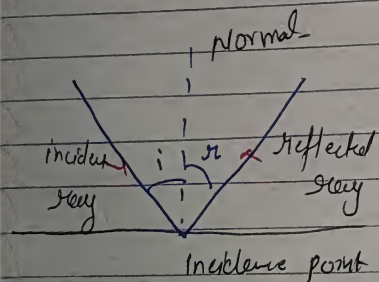 Normal
incident i r reflected
ray ray
Incidence point